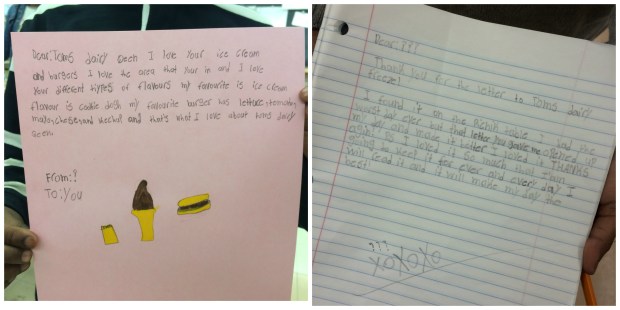 Dear: Toms dairy Qeen I love Your ice cream
and burgers I love the area that your in and I love
Your different types of flavours my favourite is ice cream
flavour is cookie dogh my favourite burger has lettuce, tomato,
mayo, cheese, and and that's what I love about toms dairy
Qeen.
From:?
To: You
Dear: ???
Thank you for the letter to Toms dairy
freeze!
I found it on the picnik table I had the
worst day ever but that letter you gave me opened up
my and made it better I loved it THANKS
again! So I loved it so much that I am
going to keep it for ever and every day I
will read it and it will make my day the
best!
???
XOXOXO